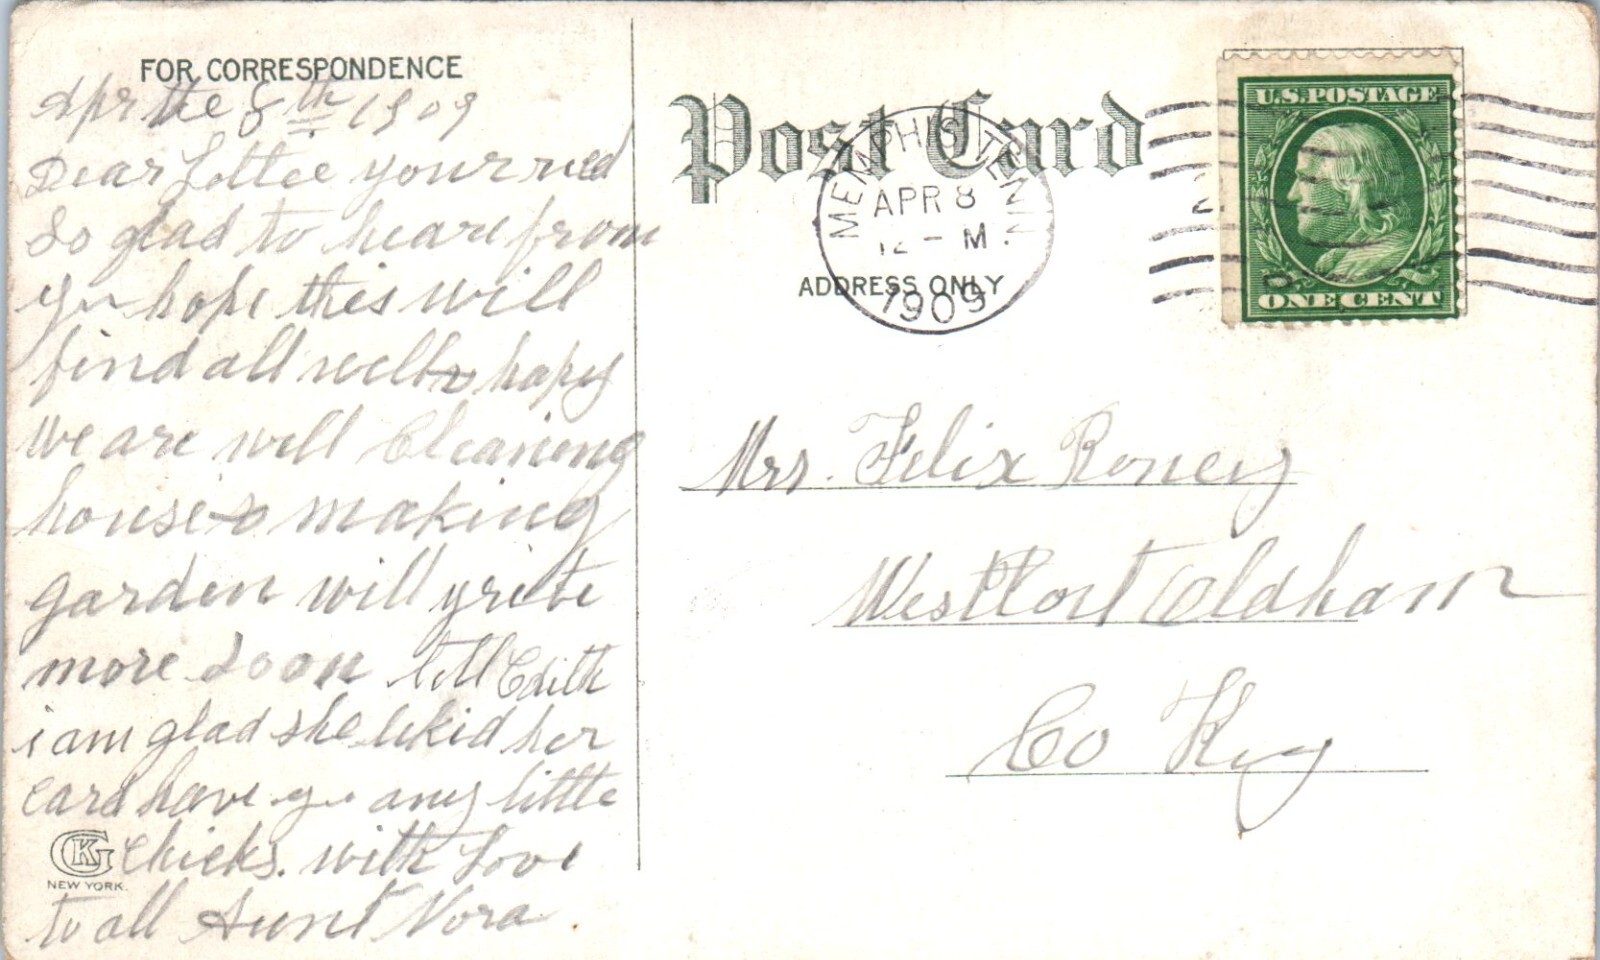 FOR CORRESPONDENCE
Apr the 8th 1909
Dear Lottee your recd
So glad to heare from
yu hope this will
find all well & hapy
We are well Cleaning
house & making
garden will write
more Soon tell Edith
i am glad she likid her
card have yu any little
Chicks. with Love
to all Aunt Nora
GK
NEW YORK.
Post Card
ADDRESS ONLY
MEMPHIS, TENN.
APR 8
12 - M.
1909
U.S. POSTAGE
ONE CENT
Mrs. Felix Roney
WestPort Oldham
Co Ky